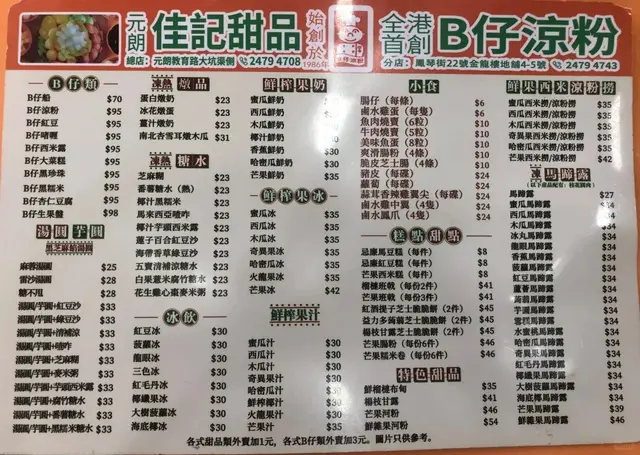 元朗 佳記甜品 始創於1986年
總店：元朗教育路大坑渠側 2479 4708
全港首創 B仔涼粉
分店：鳳琴街22號金龍樓地鋪4-5號 2479 4743
B仔類
B仔船 $70
B仔涼粉 $95
B仔紅豆 $95
B仔啫喱 $95
B仔西米露 $95
B仔大菜糕 $95
B仔黑珍珠 $95
B仔黑糯米 $95
B仔杏仁豆腐 $95
B仔生果盤 $98
湯圓 芋圓
黑芝麻餡湯圓
麻蓉湯圓 $25
雷沙湯圓 $28
糖不甩 $28
湯圓/芋圓+紅豆沙 $33
湯圓/芋圓+綠豆沙 $33
湯圓/芋圓+清補涼 $33
湯圓/芋圓+喳咋 $33
湯圓/芋圓+芝麻糊 $33
湯圓/芋圓+麥米粥 $33
湯圓/芋圓+芋頭西米露 $33
湯圓/芋圓+腐竹糖水 $33
湯圓/芋圓+番薯糖水 $33
湯圓/芋圓+黑糯米糖水 $33
凍熱 燉品
蛋白燉奶 $23
冰花燉蛋 $23
薑汁燉奶 $23
南北杏雪耳燉木瓜 $31
凍熱 糖水
芝麻糊 $23
番薯糖水（熱） $23
椰汁黑糯米 $23
馬來西亞喳咋 $23
椰汁芋頭西米露 $23
蓮子百合紅豆沙 $23
海帶香草綠豆沙 $23
五寶清補涼糖水 $23
白果薏米腐竹糖水 $23
花生雞心棗麥米粥 $23
冰飲
紅豆冰 $30
菠蘿冰 $30
龍眼冰 $30
三色冰 $30
紅毛丹冰 $30
椰纖果冰 $30
大樹菠蘿冰 $30
海底椰冰 $30
鮮榨果奶
蜜瓜鮮奶 $30
西瓜鮮奶 $30
木瓜鮮奶 $30
椰汁鮮奶 $30
香蕉鮮奶 $30
哈密瓜鮮奶 $30
芒果鮮奶 $35
鮮榨果冰
蜜瓜冰 $35
西瓜冰 $35
木瓜冰 $35
奇異果冰 $35
哈密瓜冰 $35
火龍果冰 $35
芒果冰 $42
鮮榨果汁
蜜瓜汁 $30
西瓜汁 $30
木瓜汁 $30
奇異果汁 $30
哈密瓜汁 $30
鮮榨椰汁 $30
火龍果汁 $30
芒果汁 $35
小食
腸仔（每條） $6
鹵水雞蛋（每隻） $6
魚肉燒賣（6粒） $10
牛肉燒賣（5粒） $10
美味魚蛋（8粒） $10
爽滑腸粉（4條） $10
脆皮芝士腸（4條） $10
豬皮（每碟） $24
蘿蔔（每碟） $24
蒜茸香辣雞翼尖（每碟） $24
鹵水雞中翼（4隻） $24
鹵水鳳爪（4隻） $24
糕點甜點
忌廉馬豆糕（每件） $8
忌廉紅豆糕（每件） $8
芒果西米糕（每件） $8
榴槤班戟（每份2件） $41
芒果班戟（每份2件） $41
紅酒提子芝士脆脆餅（2件） $45
益力多蒟蒻芝士脆脆餅（2件） $45
楊枝甘露芝士脆脆餅（2件） $45
芒果腸粉（每份6件） $46
芒果糯米卷（每份6件） $46
特色甜品
鮮榴槤布甸 $35
楊枝甘露 $41
芒果河粉 $54
鮮雜果河粉 $54
鮮果西米涼粉撈
蜜瓜西米撈/涼粉撈 $35
西瓜西米撈/涼粉撈 $35
木瓜西米撈/涼粉撈 $35
奇異果西米撈/涼粉撈 $35
哈密瓜西米撈/涼粉撈 $35
芒果西米撈/涼粉撈 $42
凍 馬蹄露
馬蹄露 $27
蜜瓜馬蹄露 $34
西瓜馬蹄露 $34
木瓜馬蹄露 $34
冰丸馬蹄露 $34
龍眼馬蹄露 $34
香蕉馬蹄露 $34
紅豆馬蹄露 $34
蘆薈馬蹄露 $34
蒟蒻馬蹄露 $34
芋圓馬蹄露 $34
雪糕馬蹄露 $34
水蜜桃馬蹄露 $34
奇異果馬蹄露 $34
紅毛丹馬蹄露 $34
椰纖果馬蹄露 $34
大樹菠蘿馬蹄露 $34
海底椰馬蹄露 $34
芒果馬蹄露 $39
鮮雜果馬蹄露 $46
各式甜品類外賣加1元，各式B仔類外賣加3元。圖片只供參考。